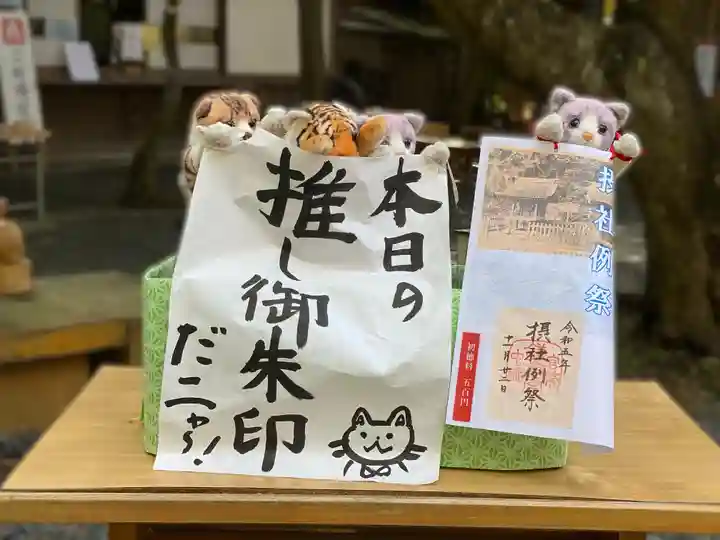 本日の
推し御朱印
だニャら!
摂社例祭
令和五年
十一月廿三日
摂社例祭
初穂料 五百円